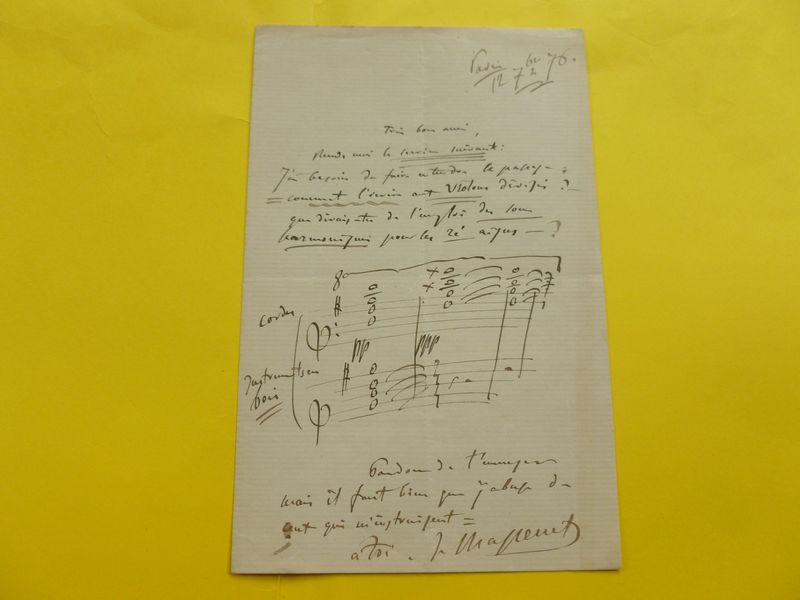 Paris
12 7bre 76.
bon ami,
Rends moi le service suivant:
J'ai besoin de faire entendre le passage
comment l'écrire aux Violons divisés?
que dirais-tu de l'emploi des sons
harmoniques pour les ré aigus — ?
8a
cordes
pp ppp
Instruments en
bois
Pardon de t'ennuyer
mais il faut bien que j'abuse de
ceux qui m'instruisent =
a toi . J. Massenet